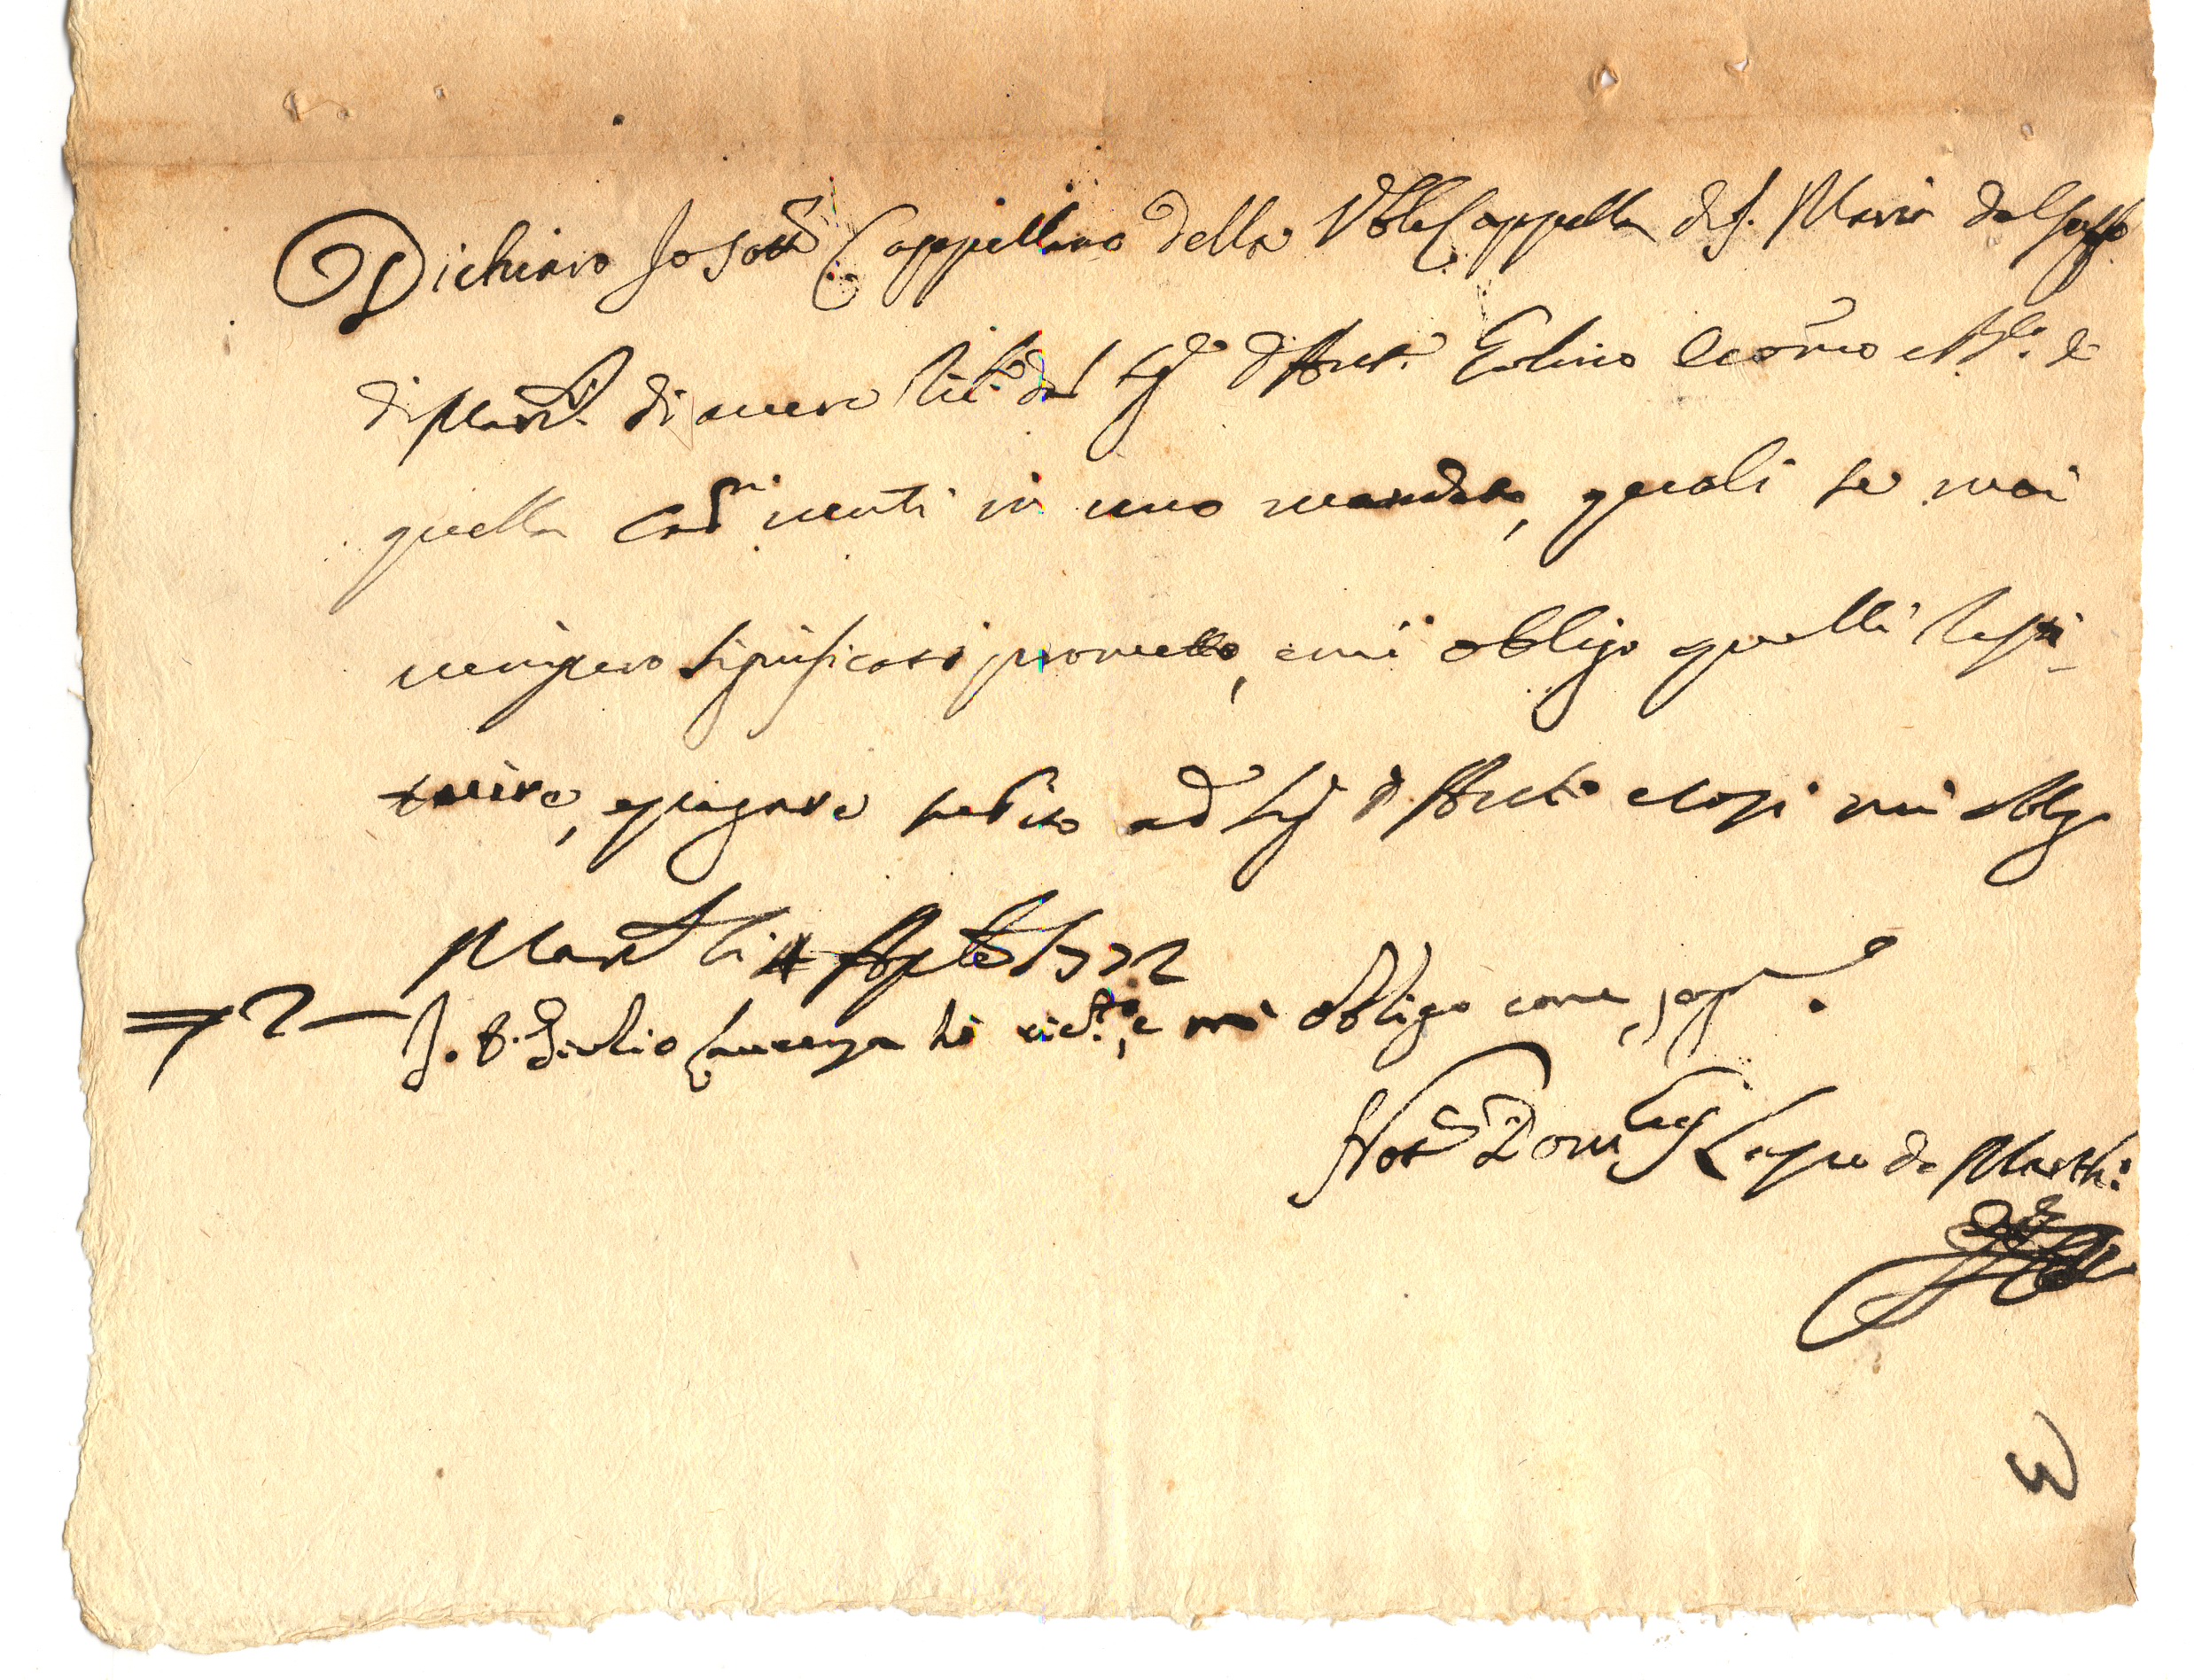 Dichiaro Io sott.o Cappellano della V.ble Cappella di S. Maria del
di Mart.o di avere ric.to dal Sig.r D. Ant.o Ecōmo
quella carlini venti in uno mandato, quali se mai
venissero significati prometto, e mi obligo quelli resti-
tuire, e pagare subito ad Sig.r D. Ant.o e così mi obligo
Mart.o li 4 Aple 1722
Io D. Giulio ho ric.to, e mi obligo come sopra
Not.r Dom.co Lapre de Marth.o
3